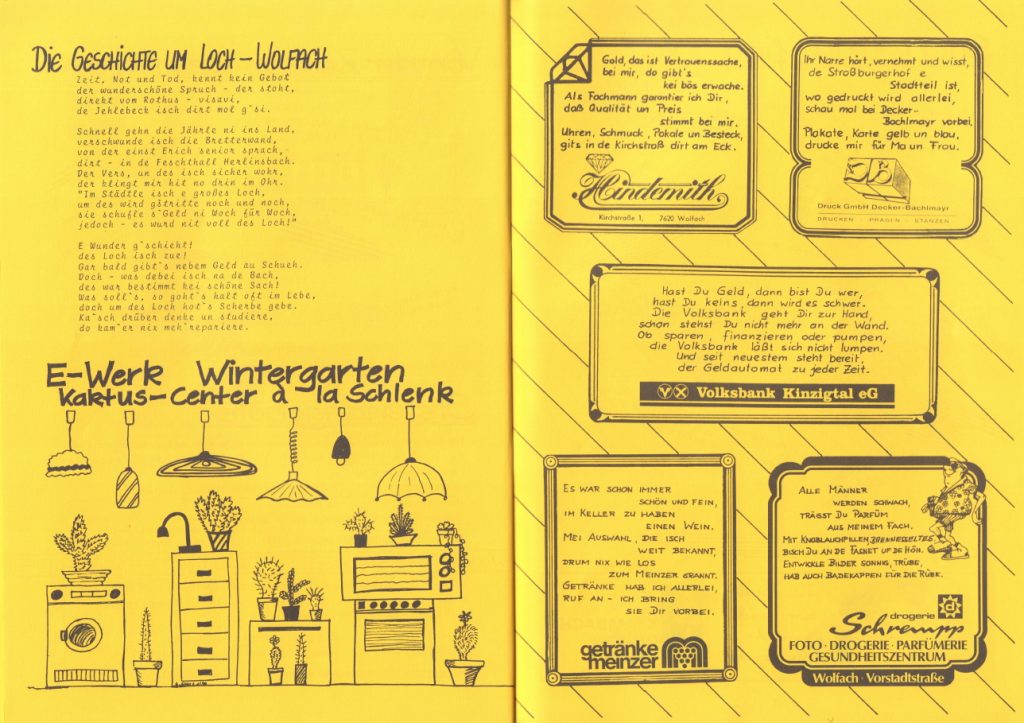 Die Geschichte um Loch-Wolfach
Zeit, Not und Tod, kennt kein Gebot
der wunderschöne Spruch - der stoht,
direkt vom Rothus - visavi,
de Jehlebeck isch dirt mol g`si.
Schnell gehn die Jährle ni ins Land,
verschwunde isch die Bretterwand,
von der einst Erich senior sprach,
dirt - in de Feschthall Herlinsbach.
Der Vers, un des isch sicher wohr,
der klingt mir hit no drin im Ohr.
"Im Städtle isch e großes Loch,
um des wird g`stritte noch und noch,
sie schufle s`Geld ni Woch für Woch,
jedoch - es wurd nit voll des Loch!"
E Wunder g`schieht!
des Loch isch zue!
Gar bald gibt`s nebem Geld au Schueh.
Doch - was debei isch na de Bach,
des war bestimmt kei schöne Sach!
Was soll`s, so goht`s halt oft im Lebe,
doch um des Loch hot`s Scherbe gebe.
Ka`sch drüber denke un studiere,
do kam`er nix meh`repariere.
E-Werk Wintergarten
Kaktus-Center à la Schlenk
Gold, das ist Vertrauenssache,
bei mir, do gibt's
kei bös erwache.
Als Fachmann garantier ich Dir,
daß Qualität un Preis
stimmt bei mir.
Uhren, Schmuck, Pokale un Besteck,
gits in de Kirchstroß dirt am Eck.
Hindemith
Kirchstraße 1, 7620 Wolfach
Ihr Narre hört, vernehmt und wisst,
de Stroßburgerhof e
Stadtteil ist,
wo gedruckt wird allerlei,
schau mol bei Decker-
Bachlmayr vorbei.
Plakate, Karte gelb un blau,
drucke mir für Ma un Frau.
Druck GmbH Decker-Bachlmayr
DRUCKEN · PRÄGEN · STANZEN
Hast Du Geld, dann bist Du wer,
hast Du keins, dann wird es schwer.
Die Volksbank geht Dir zur Hand,
schon stehst Du nicht mehr an der Wand.
Ob sparen, finanzieren oder pumpen,
die Volksbank läßt sich nicht lumpen.
Und seit neuestem steht bereit,
der Geldautomat zu jeder Zeit.
Volksbank Kinzigtal eG
Es war schon immer
schön und fein,
im Keller zu haben
einen Wein.
Mei Auswahl, die isch
weit bekannt,
drum nix wie los
zum Meinzer grannt.
Getränke hab ich allerlei,
ruf an - ich bring
sie Dir vorbei.
getränke
meinzer
Alle Männer
werden schwach,
trägst Du Parfüm
aus meinem Fach.
Mit Knoblauchpillen, Brennesseltee
bisch Du an de Fasnet uf de Höh.
Entwickle Bilder sonnig, trübe,
hab auch Badekappen für die Rübe.
drogerie
Schrempp
FOTO · DROGERIE · PARFÜMERIE
GESUNDHEITSZENTRUM
Wolfach · Vorstadtstraße